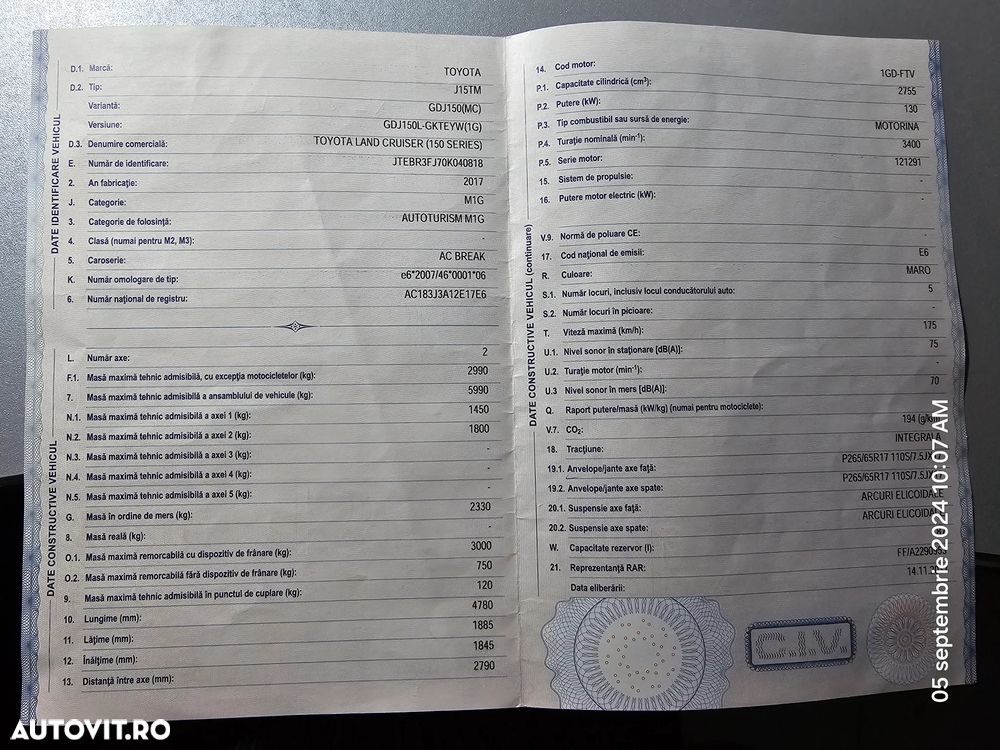 DATE IDENTIFICARE VEHICUL
D.1. Marcă: TOYOTA
D.2. Tip: J15TM
Variantă: GDJ150(MC)
Versiune: GDJ150L-GKTEYW(1G)
D.3. Denumire comercială: TOYOTA LAND CRUISER (150 SERIES)
E. Număr de identificare: JTEBR3FJ70K040818
2. An fabricaţie: 2017
J. Categorie: M1G
3. Categorie de folosinţă: AUTOTURISM M1G
4. Clasă (numai pentru M2, M3): -
5. Caroserie: AC BREAK
K. Număr omologare de tip: e6*2007/46*0001*06
6. Număr naţional de registru: AC183J3A12E17E6
DATE CONSTRUCTIVE VEHICUL
L. Număr axe: 2
F.1. Masă maximă tehnic admisibilă, cu excepţia motocicletelor (kg): 2990
7. Masă maximă tehnic admisibilă a ansamblului de vehicule (kg): 5990
N.1. Masă maximă tehnic admisibilă a axei 1 (kg): 1450
N.2. Masă maximă tehnic admisibilă a axei 2 (kg): 1800
N.3. Masă maximă tehnic admisibilă a axei 3 (kg): -
N.4. Masă maximă tehnic admisibilă a axei 4 (kg): -
N.5. Masă maximă tehnic admisibilă a axei 5 (kg): -
G. Masă în ordine de mers (kg): 2330
8. Masă reală (kg): -
O.1. Masă maximă remorcabilă cu dispozitiv de frânare (kg): 3000
O.2. Masă maximă remorcabilă fără dispozitiv de frânare (kg): 750
9. Masă maximă tehnic admisibilă în punctul de cuplare (kg): 120
10. Lungime (mm): 4780
11. Lăţime (mm): 1885
12. Înălţime (mm): 1845
13. Distanţă între axe (mm): 2790
DATE CONSTRUCTIVE VEHICUL (continuare)
14. Cod motor: 1GD-FTV
P.1. Capacitate cilindrică (cm³): 2755
P.2. Putere (kW): 130
P.3. Tip combustibil sau sursă de energie: MOTORINA
P.4. Turaţie nominală (min⁻¹): 3400
P.5. Serie motor: 121291
15. Sistem de propulsie: -
16. Putere motor electric (kW): -
V.9. Normă de poluare CE: -
17. Cod naţional de emisii: E6
R. Culoare: MARO
S.1. Număr locuri, inclusiv locul conducătorului auto: 5
S.2. Număr locuri în picioare: -
T. Viteză maximă (km/h): 175
U.1. Nivel sonor în staţionare [dB(A)]: 75
U.2. Turaţie motor (min⁻¹): -
U.3 Nivel sonor în mers [dB(A)]: 70
Q. Raport putere/masă (kW/kg) (numai pentru motociclete): -
V.7. CO₂: 194 (g/km)
18. Tracţiune: INTEGRALA
19.1. Anvelope/jante axe faţă: P265/65R17 110S/7.5JX
19.2. Anvelope/jante axe spate: P265/65R17 110S/7.5JX
20.1. Suspensie axe faţă: ARCURI ELICOIDALE
20.2. Suspensie axe spate: ARCURI ELICOIDALE
W. Capacitate rezervor (l):
21. Reprezentanţă RAR:
Data eliberării: 14.11.
C.I.V.
05 septembrie 2024 10:07 AM
AUTOVIT.RO